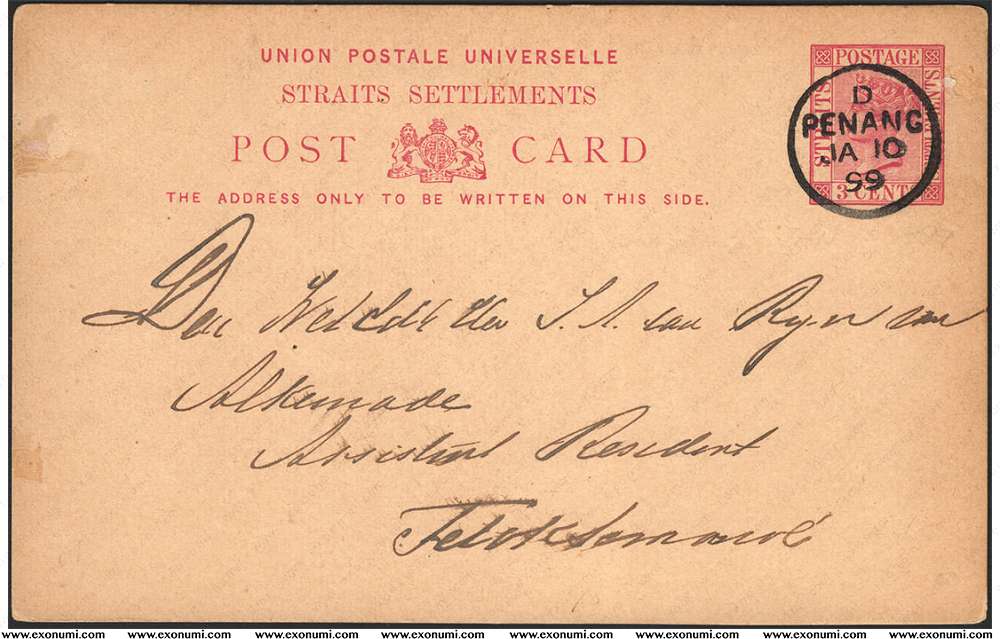 UNION POSTALE UNIVERSELLE
STRAITS SETTLEMENTS
POST CARD
THE ADDRESS ONLY TO BE WRITTEN ON THIS SIDE.
POSTAGE
STRAITS
3 CENTS
D
PENANG
JA 10
99
Den
J. A. van Rijn van
Alkemade
Assistent Resident
Teloksemawé
www.exonumi.com www.exonumi.com www.exonumi.com www.exonumi.com www.exonumi.com www.exonumi.com www.exonumi.com www.exonumi.com